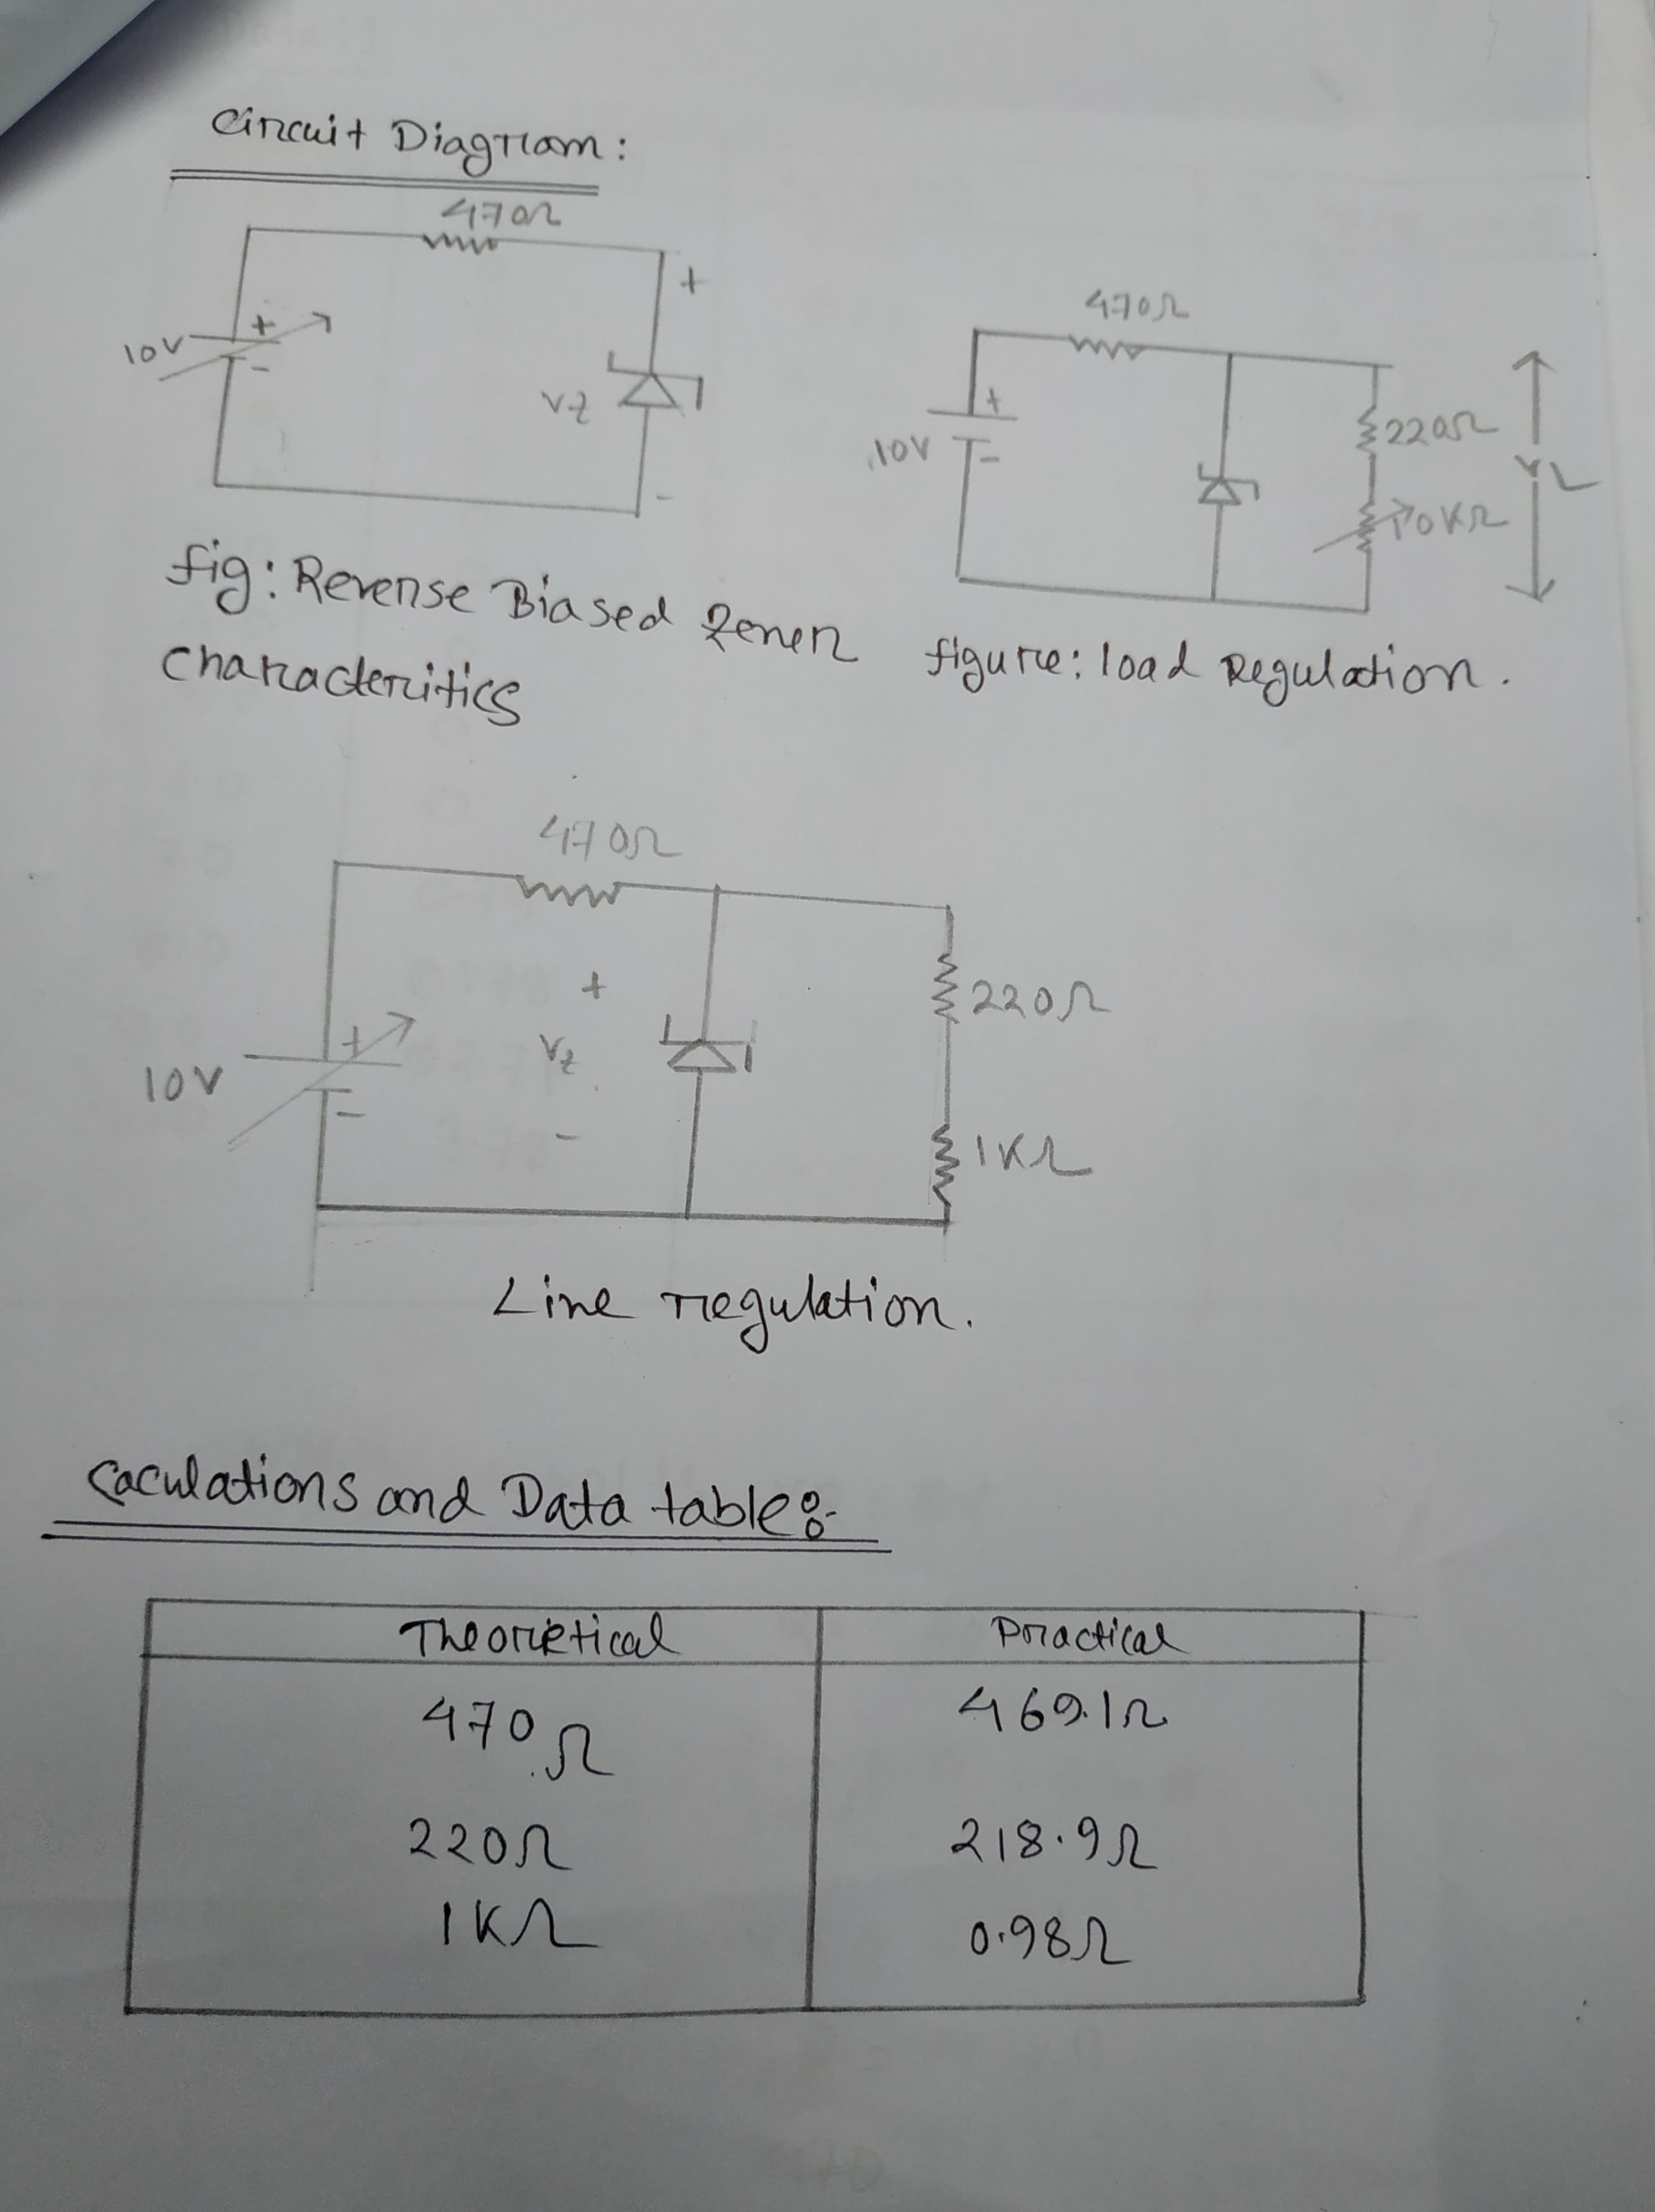 Circuit Diagram:
470Ω
+
10V
+
-
Vz
-
470Ω
+
10V
-
220Ω
10KΩ
VL
fig: Reverse Biased Zener
Characteritics
figure: load Regulation.
470Ω
+
10V
+
-
Vz
-
220Ω
1KΩ
Line regulation.
Caculations and Data table:-
Theoretical Practical
470Ω 469.1Ω
220Ω 218.9Ω
1KΩ 0.98Ω